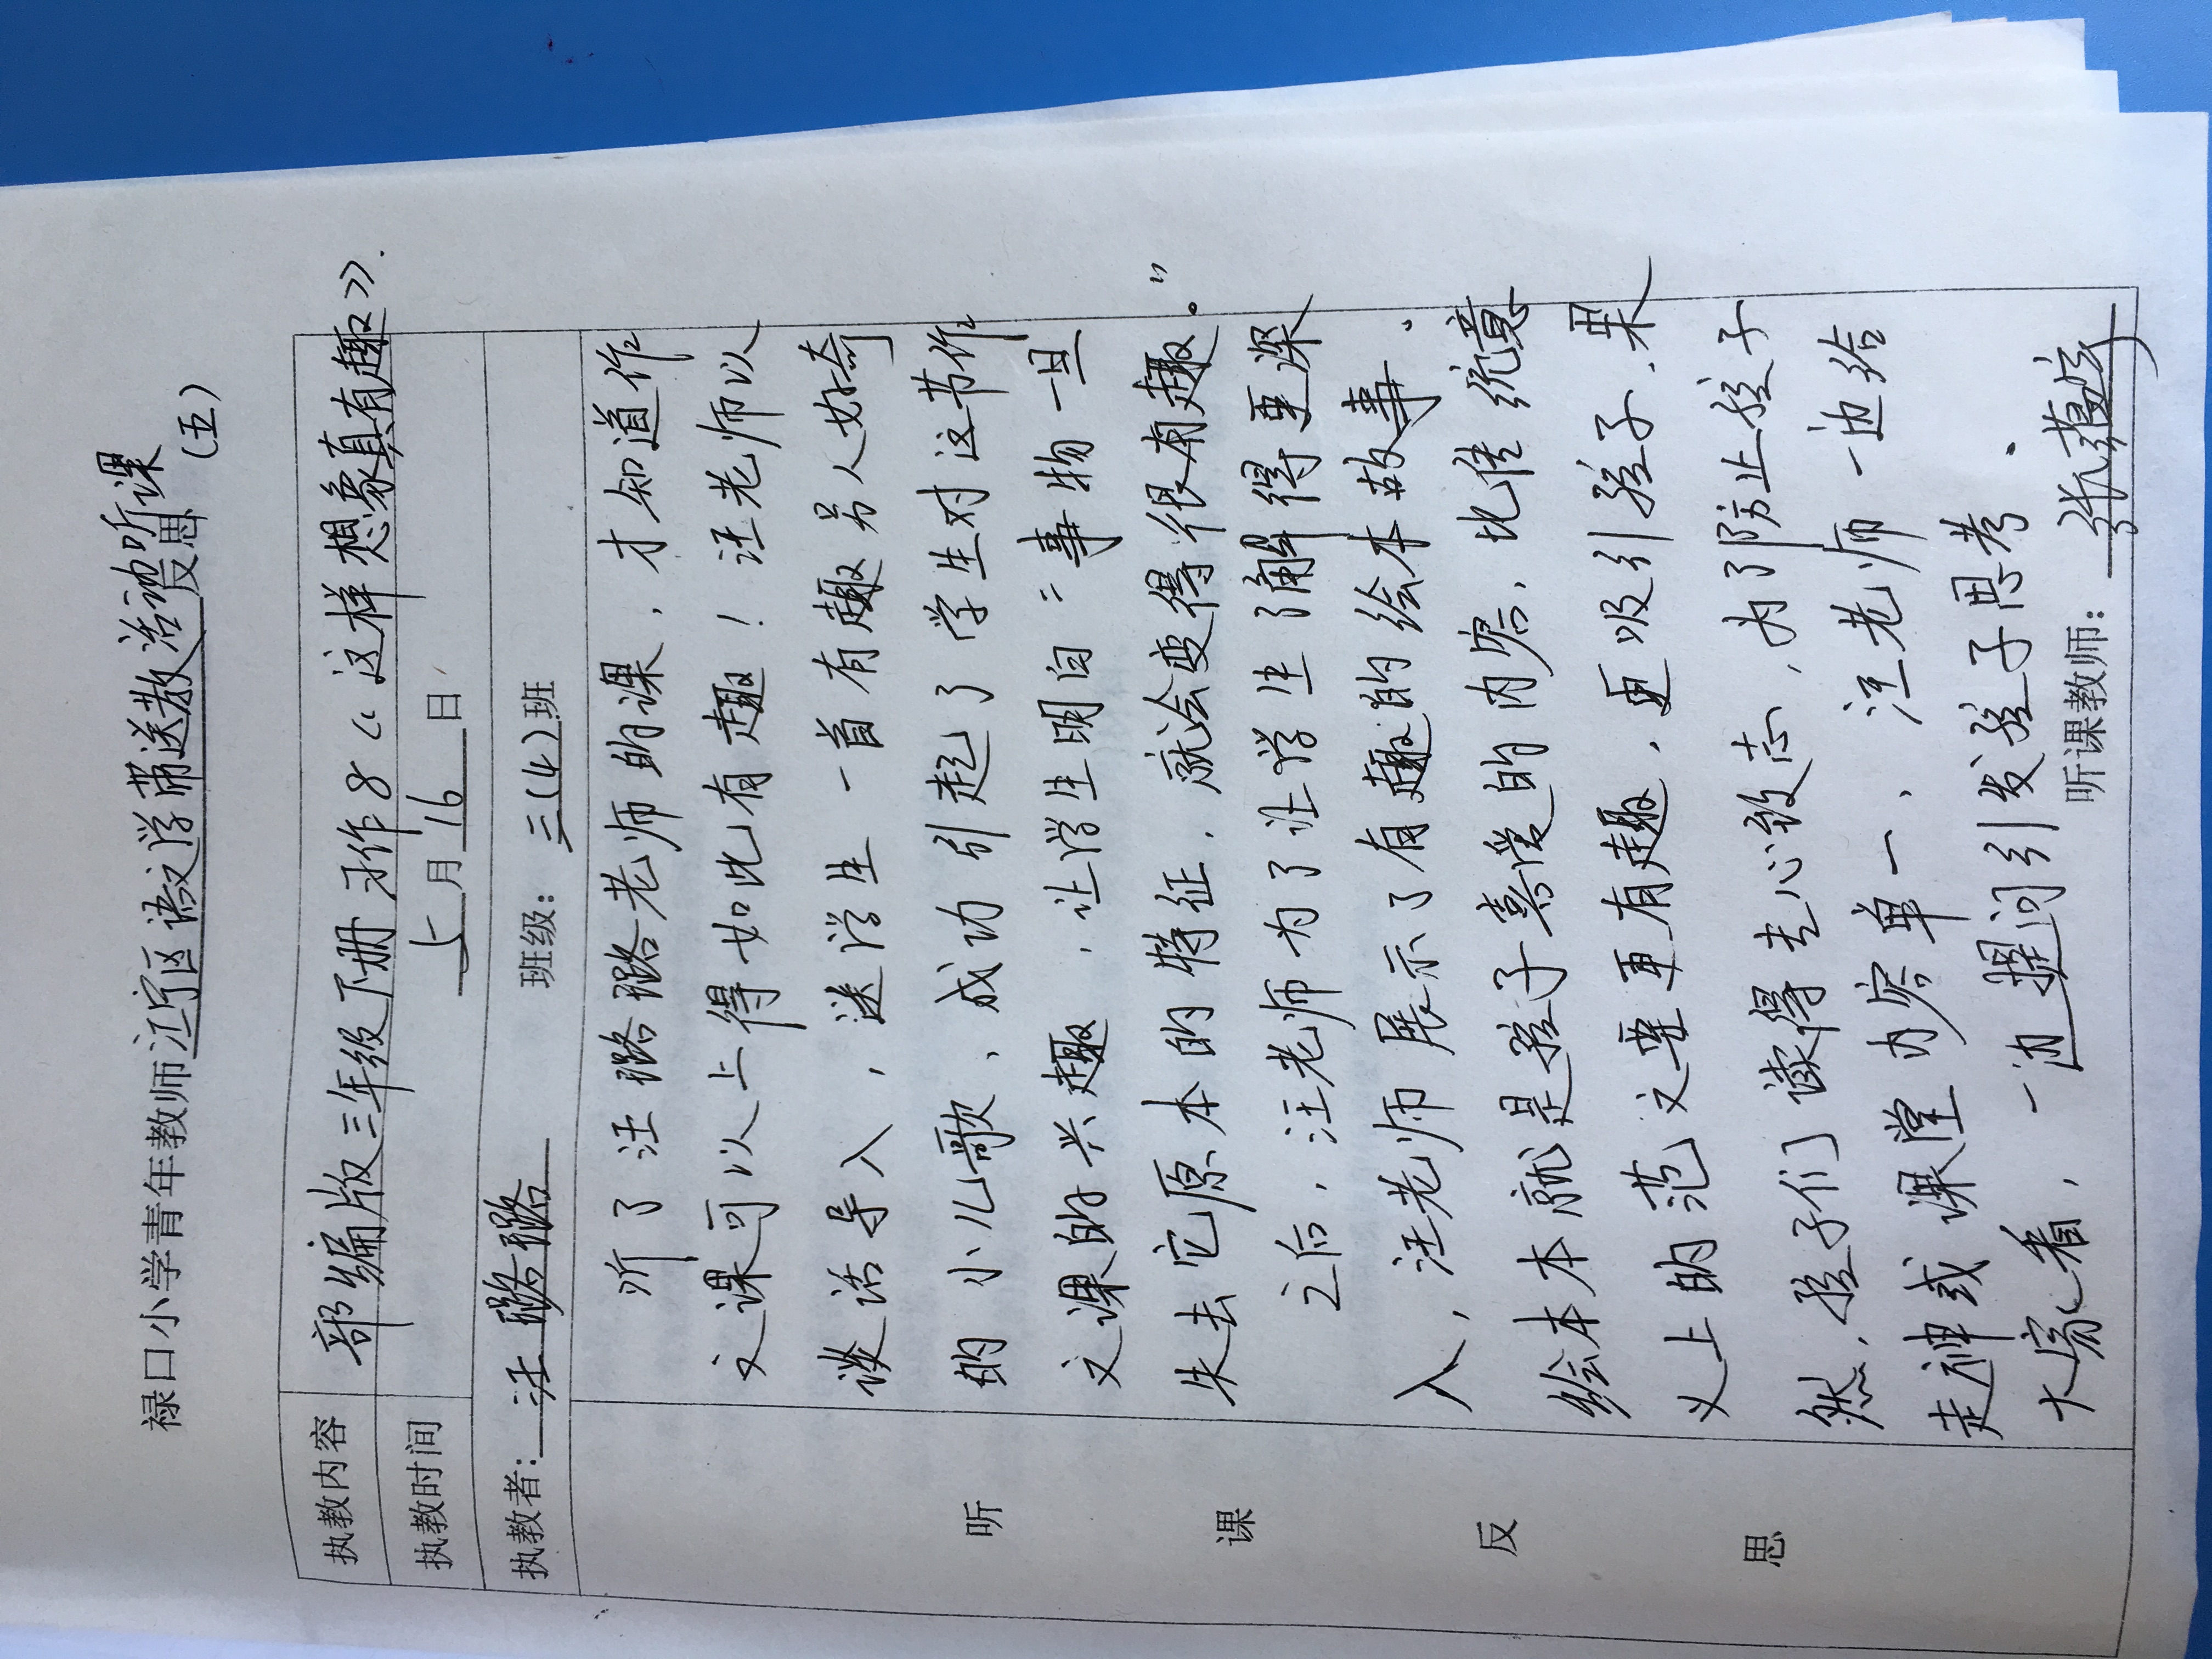 禄口小学青年教师江宁区语文学带送教活动听课反思
(五)
执教内容 部编版三年级下册习作8《这样想象真有趣》.
执教时间 5月16日
执教者: 汪璐璐 班级: 三(4)班
听课反思
听了汪璐璐老师的课，才知道作
文课可以上得如此有趣！汪老师以
谈话导入，送学生一首有趣另人好奇
的小儿歌，成功引起了学生对这节作
文课的兴趣，让学生明白“事物一旦
失去它原本的特征，就会变得很有趣。”
之后，汪老师为了让学生了解得更深
入，汪老师展示了有趣的绘本故事。
绘本本就是孩子喜爱的内容，比传统意
义上的范文要更有趣，更吸引孩子，果
然，孩子们读得专心致志，为了防止孩子
走神或课堂内容单一，汪老师一边给
大家看，一边提问引发孩子思考。
听课教师: 张蕴宇